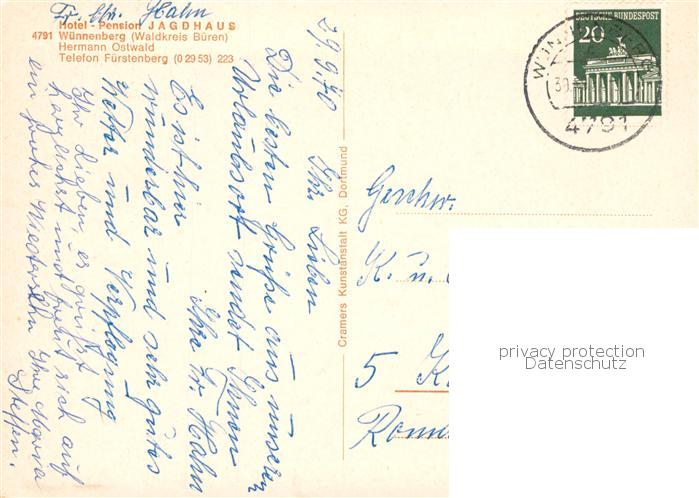 Fr. Hahn
Hotel - Pension JAGDHAUS
4791 Wünnenberg (Waldkreis Büren)
Hermann Ostwald
Telefon Fürstenberg (0 29 53) 223
29.9.70
Ihr Lieben
Die besten Grüße aus unserem
Urlaubsort sendet Ihnen
Ihre Fr. Hahn
Es ist hier
wunderbar und sehr gutes
Wetter und Verpflegung
Ihr Lieben, es grüßt
herzlichst und freut sich auf
ein frohes Wiedersehn Ihre Maria
Steffen.
Cramers Kunstanstalt KG, Dortmund
DEUTSCHE BUNDESPOST
20
4791
Geschw.
K. u.
5 K
privacy protection
Datenschutz